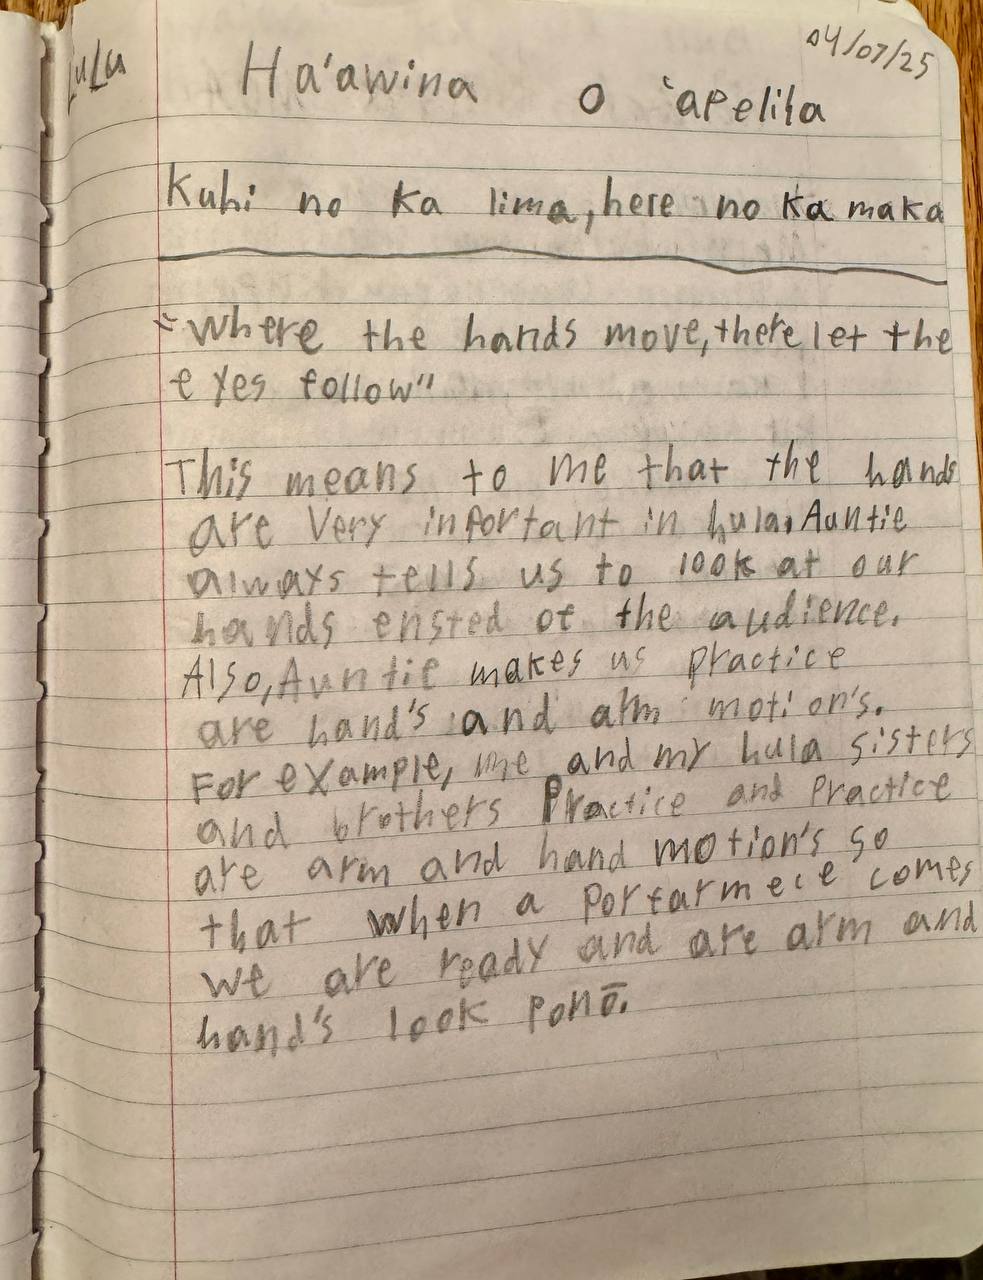 LuLu
04/07/25
Ha'awina o 'apelila
Kuhi no ka lima, here no ka maka
"where the hands move, there let the
eyes follow"
This means to me that the hands
are very inportant in hula. Auntie
always tells us to look at our
hands ensted of the audience.
Also, Auntie makes us practice
are hand's and arm motion's.
For example, me and my hula sisters
and brothers Practice and Practice
are arm and hand motion's so
that when a porfarmece comes
we are ready and are arm and
hand's look ponō.